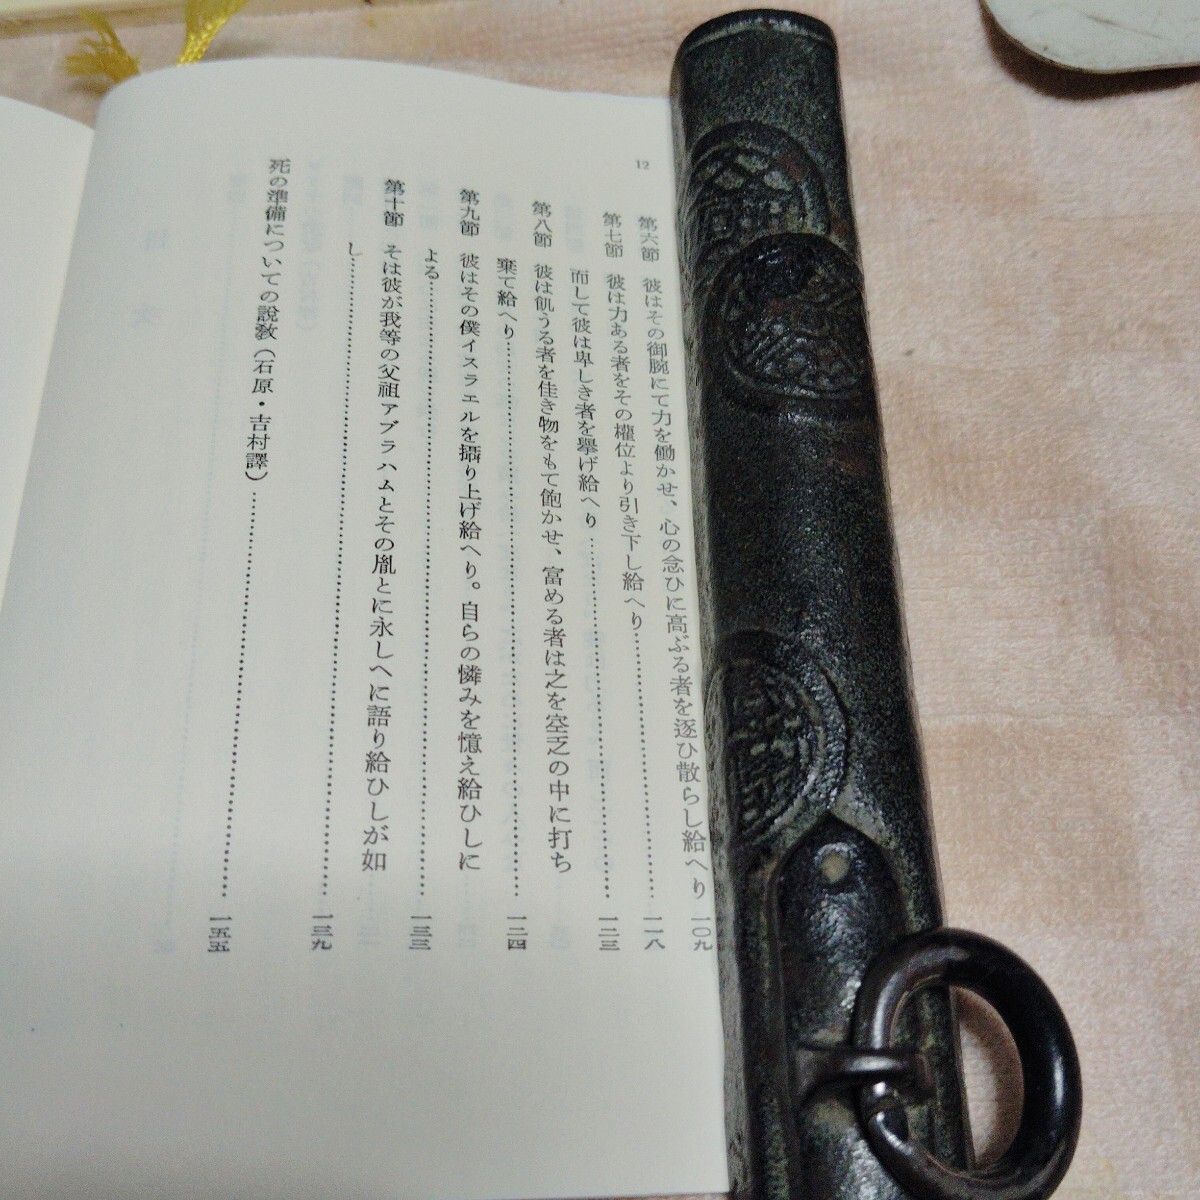 12
第六節　彼はその御腕にて力を働かせ、心の念ひに高ぶる者を逐ひ散らし給へり 一〇九
第七節　彼は力ある者をその權位より引き下し給へり…………一一八
而して彼は卑しき者を擧げ給へり…………一二三
第八節　彼は飢うる者を佳き物をもて飽かせ、富める者は之を空乏の中に打ち
棄て給へり…………一二四
第九節　彼はその僕イスラエルを攝り上げ給へり。自らの憐みを憶え給ひしに
よる…………一三三
第十節　そは彼が我等の父祖アブラハムとその胤とに永しへに語り給ひしが如
し…………一三九
死の準備についての說敎（石原・吉村譯）…………一五五